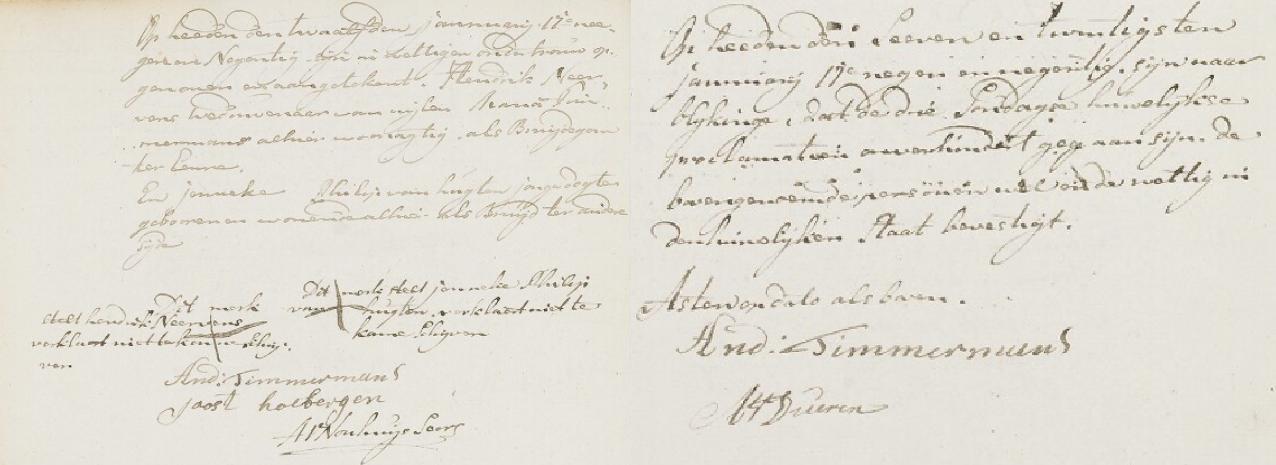 Op heeden den twaalfden januuarij 17c nee-
gen en Negentig sijn in wettigen ondertrouw op-
genomen en aangetekent. Hendrik Neer-
vens weduwenaer van wijlen Maria
mermans alhier woonagtig als Bruijdegom
ter Eenre.
En jenneke Philip van hugten jonge dogter
gebooren en woonende alhier als Bruijd ter andere
sijde
Dit merk
stelt hendrik Neervens
verklaert niet te konnen schrij-
ven
Dit merk stelt jenneke Philip
van hugten verklaert niet te
konne schrijven
And: Timmermans
joost holbergen
Op heeden den seeven en twintigsten
januuarij 17c negen en negentig, sijn naar
blijkinge, dat de drie Sondagse huwelijkse
proclamatien onverhindert gegaan sijn, de
bovengenoemde persoonen alhier in de wettig in
den huwelijken Staat bevestigt.
Asten en dato als boven.
And: Timmermans